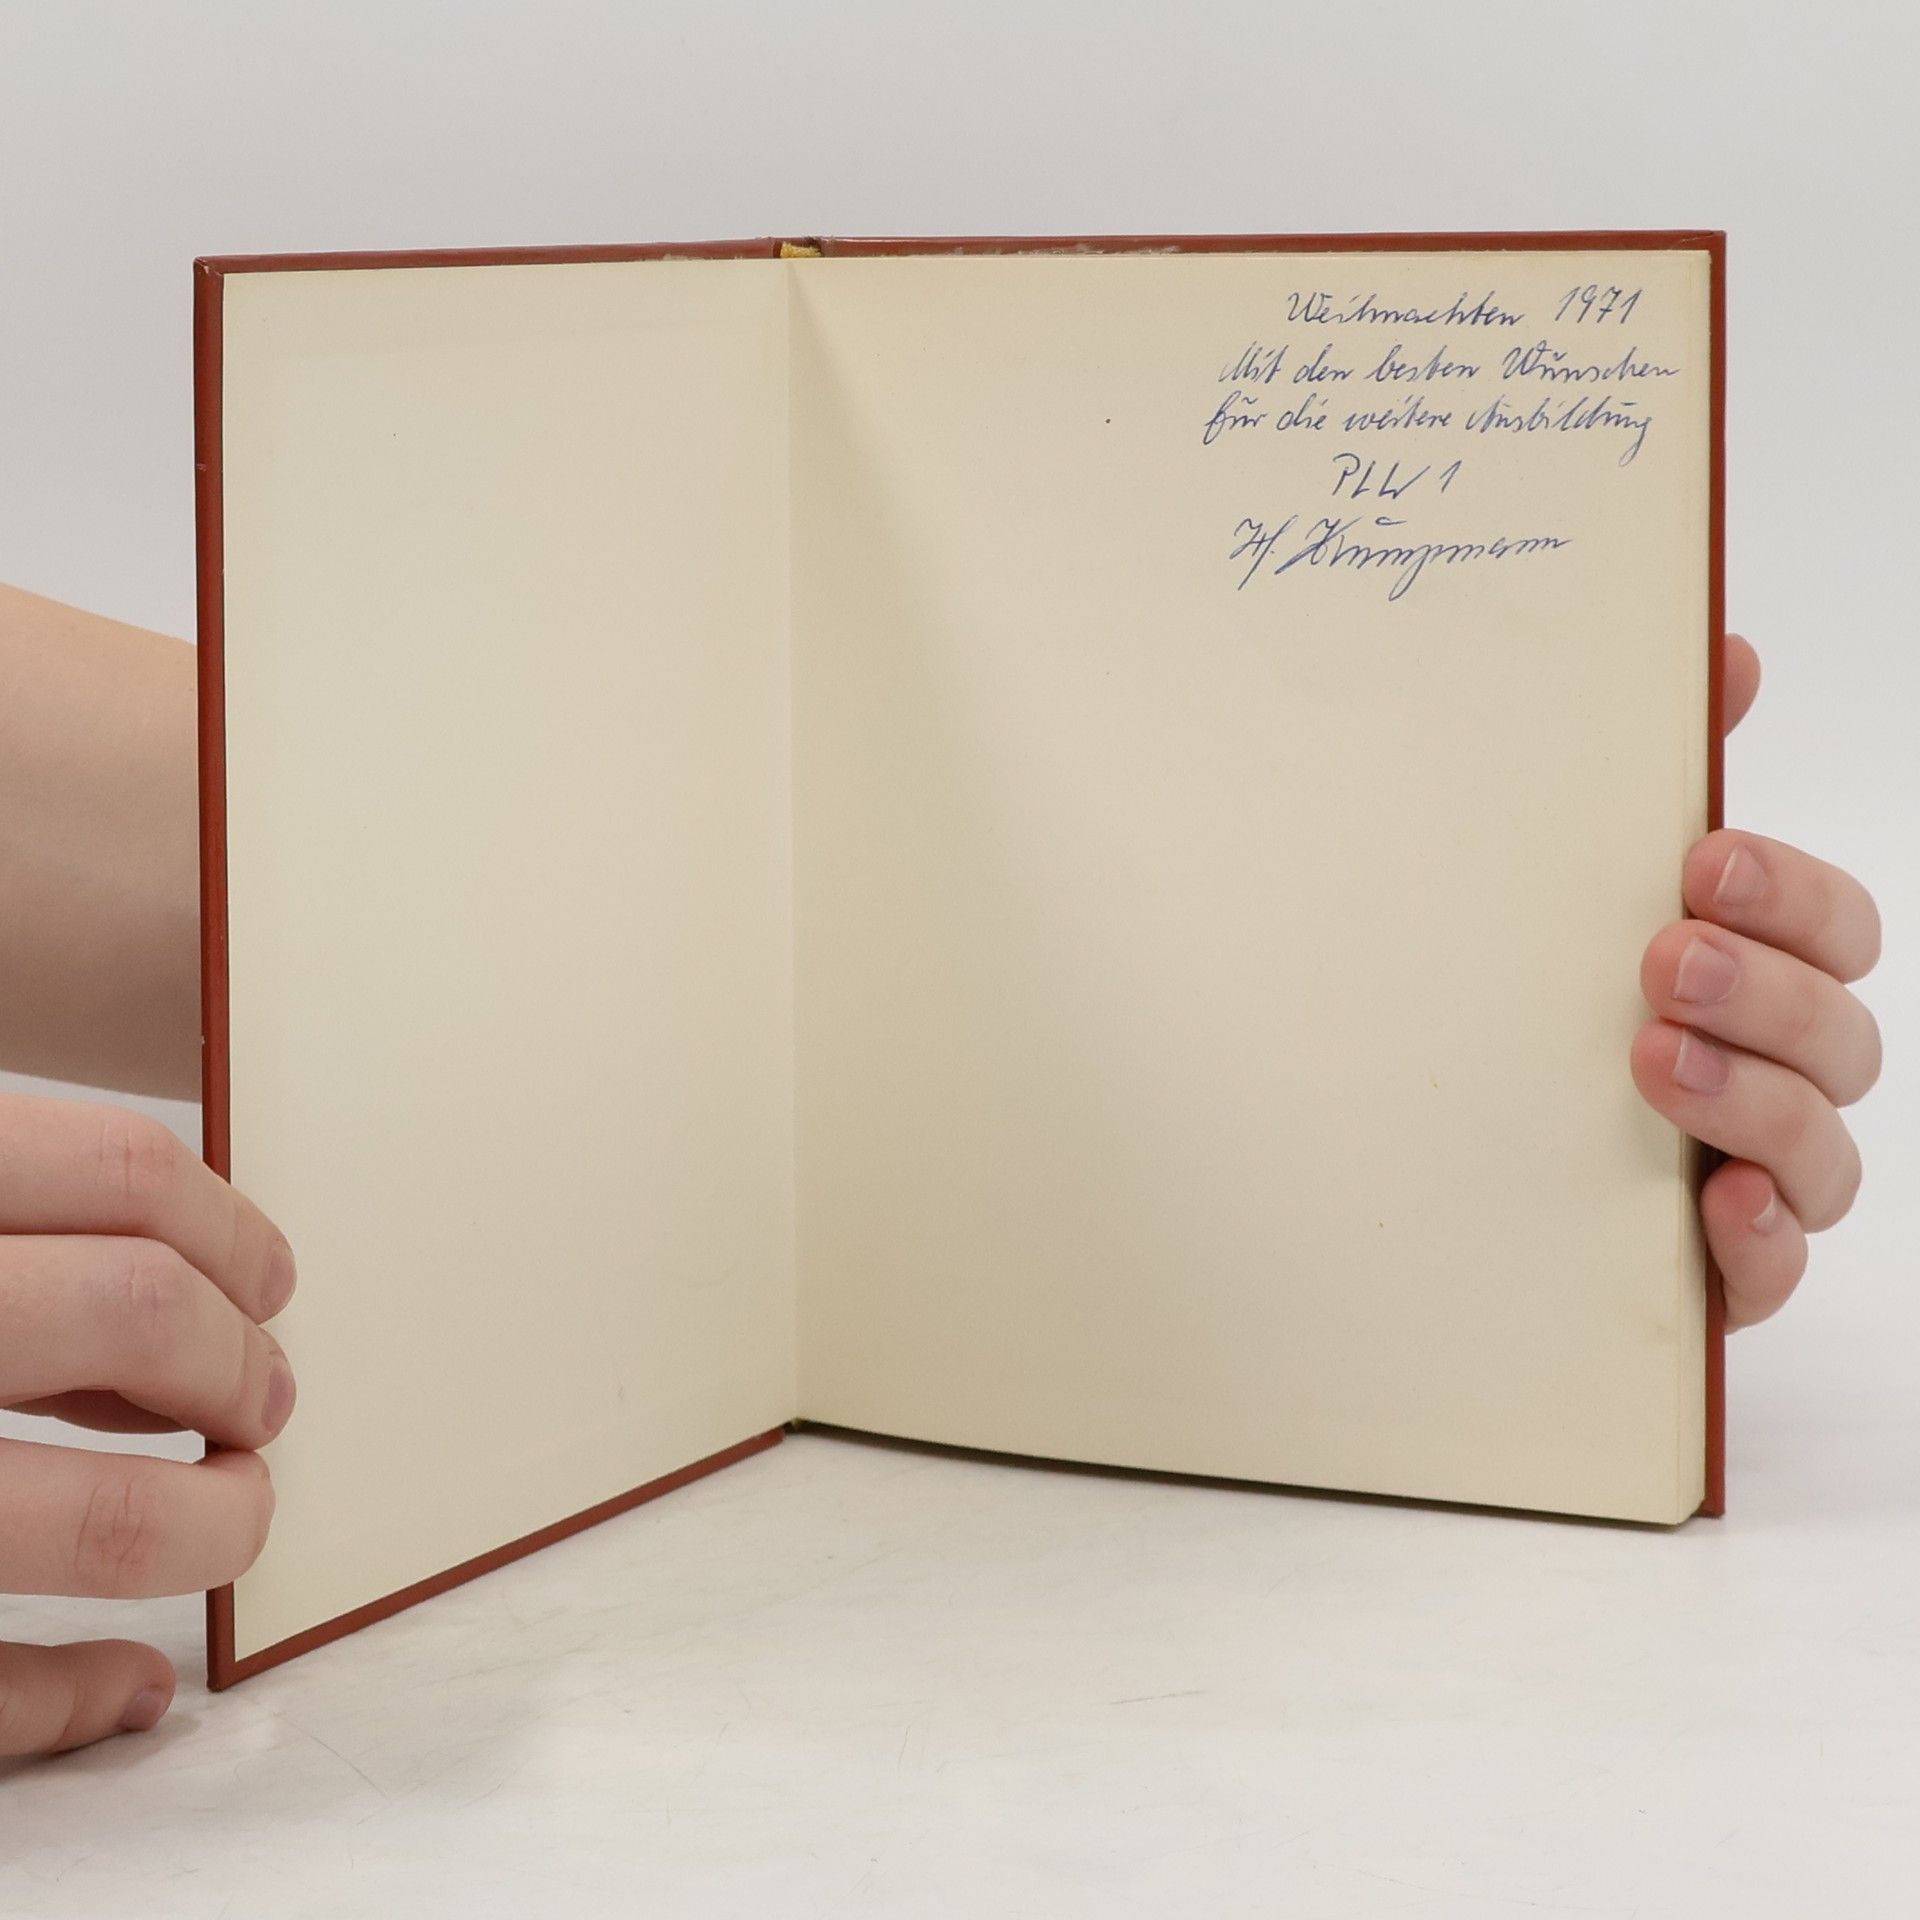 Weihnachten 1971
Mit den besten Wünschen
für die weitere Ausbildung
PLW 1
H. Krumpmann